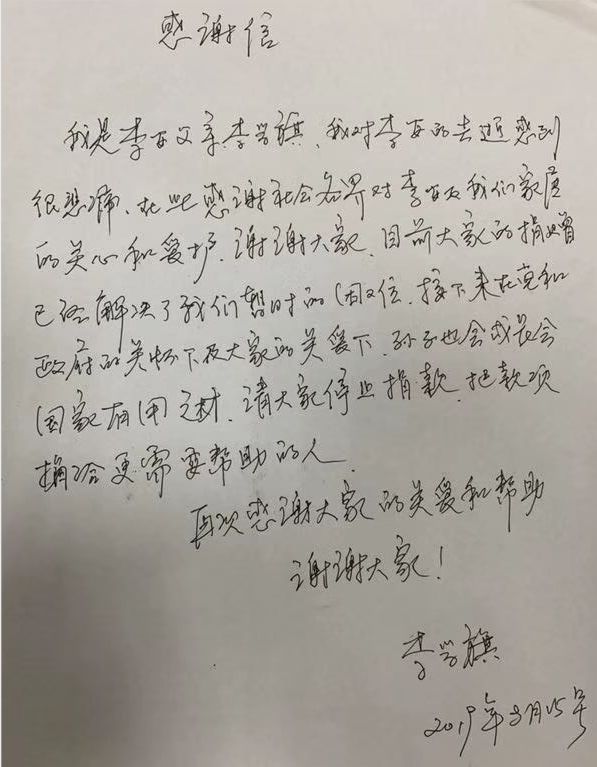 感谢信
我是李百父亲李学旗,我对李百的去逝感到
很悲痛,在此感谢社会各界对李百及我们家庭
的关心和爱护,谢谢大家,目前大家的捐赠
已经解决了我们暂时的困难,接下来在党和
政府的关怀下及大家的关爱下,孙子也会成长会
国家有用之材,请大家停止捐款,把款项
捐给更需要帮助的人,
再次感谢大家的关爱和帮助
谢谢大家!
李学旗
2019年3月15号